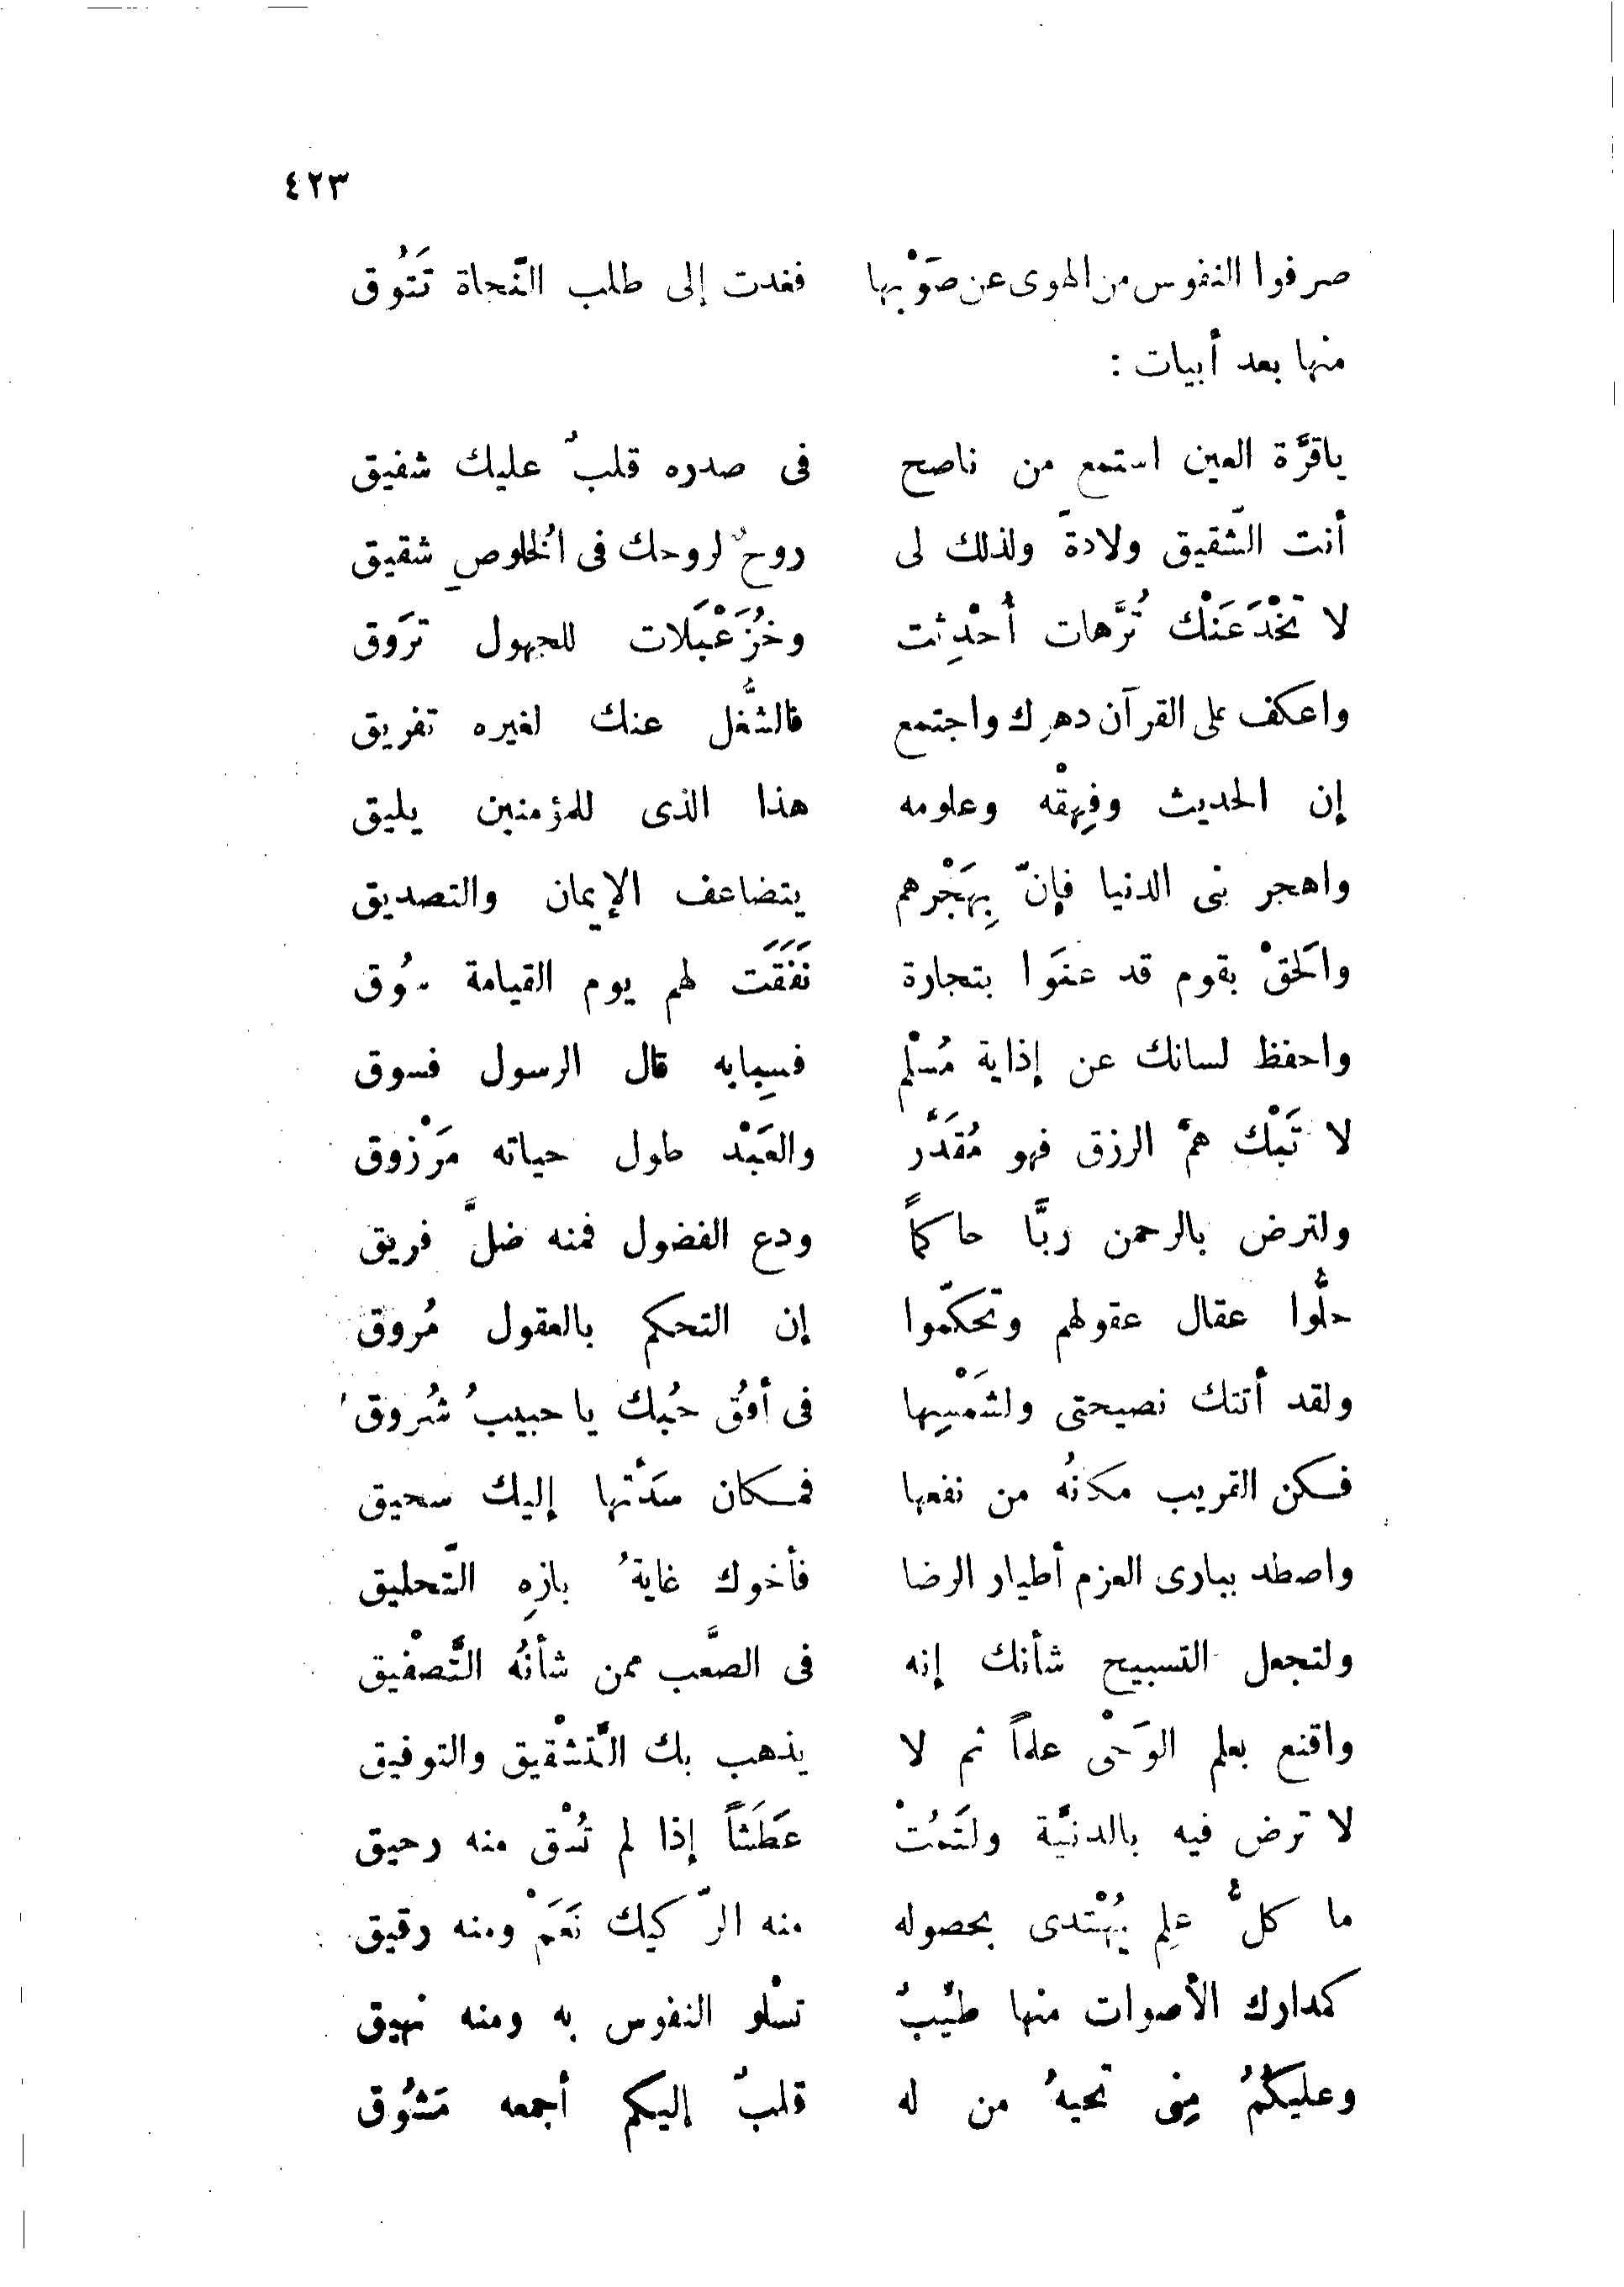 ٤٢٣
صرفوا النفوس من الهوى عن صَوْبها فغدت إلى طلب النّجاة تَتُوق
منها بعد أبيات :
ياقرَّة العين استمع من ناصح فى صدره قلبٌ عليك شفيق
أنت الشّقيق ولادةً ولذلك لى روحٌ لروحك فى الخُلوصِ شقيق
لا تخْدَعَنْك تُرَّهات أُحْدِثت وخُزَعْبَلات للجهول تَروق
واعكف على القرآن دهرك واجتمع فالشُّغل عنك لغيره تفريق
إن الحديث وفِقْهه وعلومه هذا الذى للمؤمنين يليق
واهجر بنى الدنيا فإنّ بِهَجْرهم يتضاعف الإيمان والتصديق
والحَقْ بقوم قد عنَوا بتجارة نَفَقَت لهم يوم القيامة سُوق
واحفظ لسانك عن إذاية مُسْلم فسِبابه قال الرسول فسوق
لا تَبْك همَّ الرزق فهو مُقَدَّر والعَبْد طول حياته مَرْزوق
ولترض بالرحمن ربًّا حاكماً ودع الفضول فمنه ضلَّ فريق
حلُّوا عقال عقولهم وتحكّموا إن التحكم بالعقول مُروق
ولقد أتتك نصيحتى ولشَمْسِها فى أُفق حُبك يا حبيبُ شُروق
فسكن القريب مكانُه من نفعها فمكان سَدْتها إليك سحيق
واصطد ببازى العزم أطيار الرضا فأخوك غايةُ بازِهِ التّحليق
ولتجعل التسبيح شأنك إنه فى الصَّعب ممن شأنُه التَّصْفيق
واقنع بعلم الوَحْى علماً ثم لا يذهب بك التَّشْقيق والتوفيق
لا ترض فيه بالدنيَّة ولتَمُتْ عَطَشاً إذا لم تُسْق منه رحيق
ما كلُّ علِم يُهْتدى بحصوله منه الرّكيك نَعَمْ ومنه رقيق
كمدارك الأصوات منها طيّبٌ تسْلو النفوس به ومنه نهيق
وعليكُمُ مِنى تحيةُ من له قلبٌ إليكم أجمعه مَشُوق